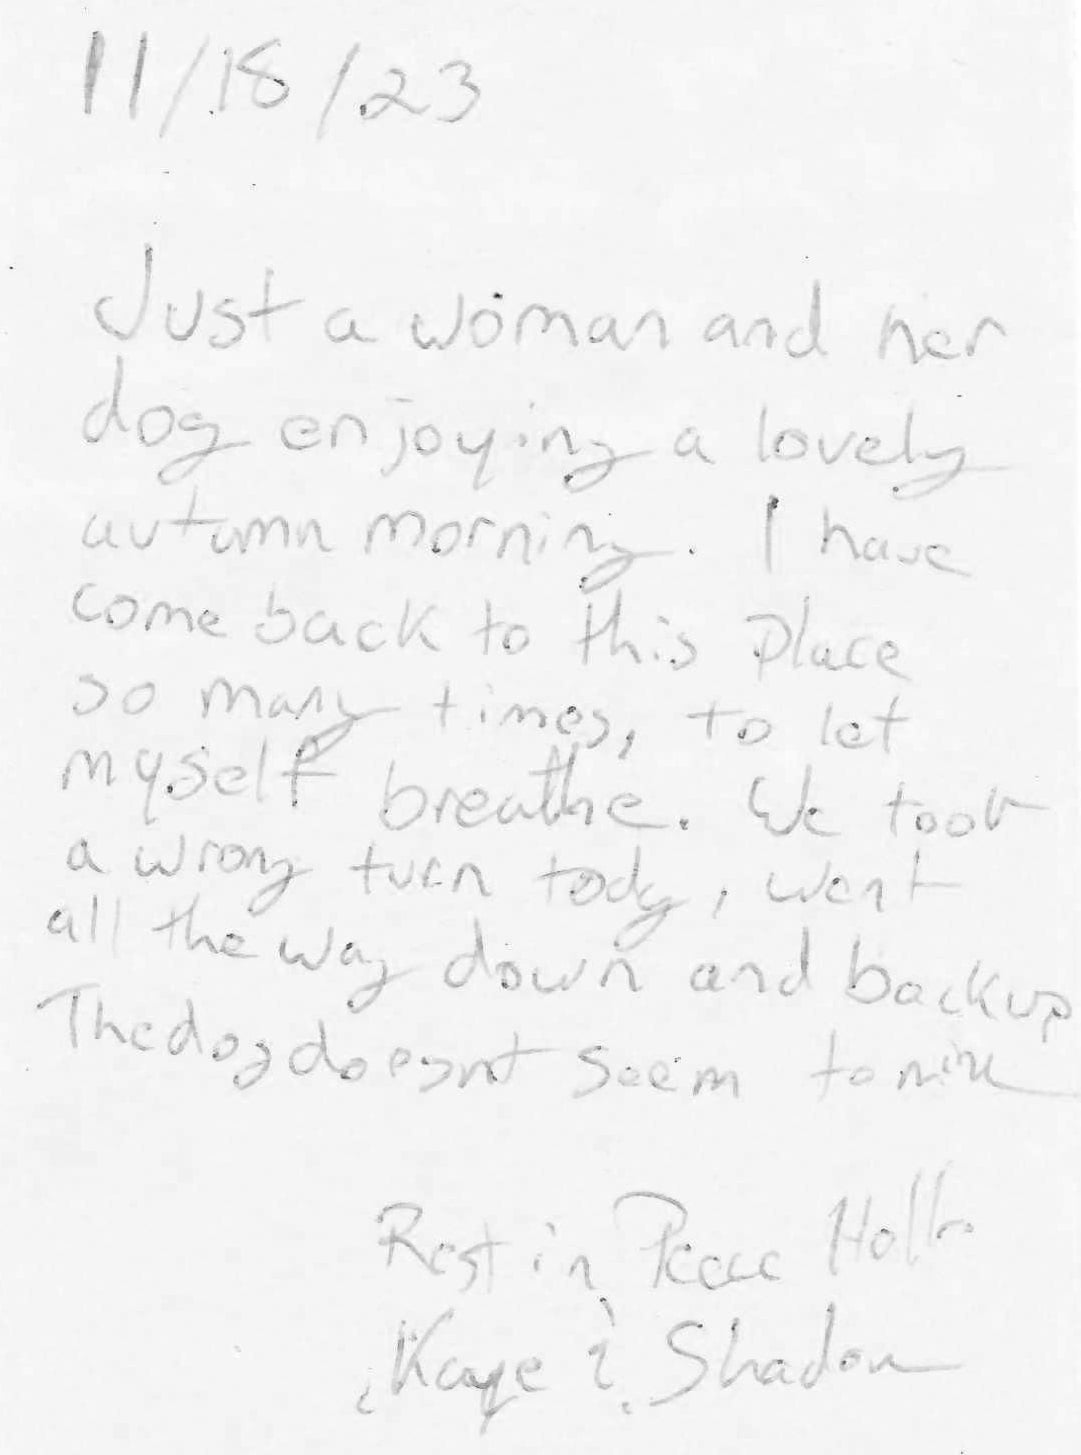 11/18/23
Just a woman and her
dog enjoying a lovely
autumn morning. I have
come back to this place
so many times, to let
myself breathe. We took
a wrong turn today, went
all the way down and back up
The dog doesnt seem to
Rest in Peace
Kaye & Shadow